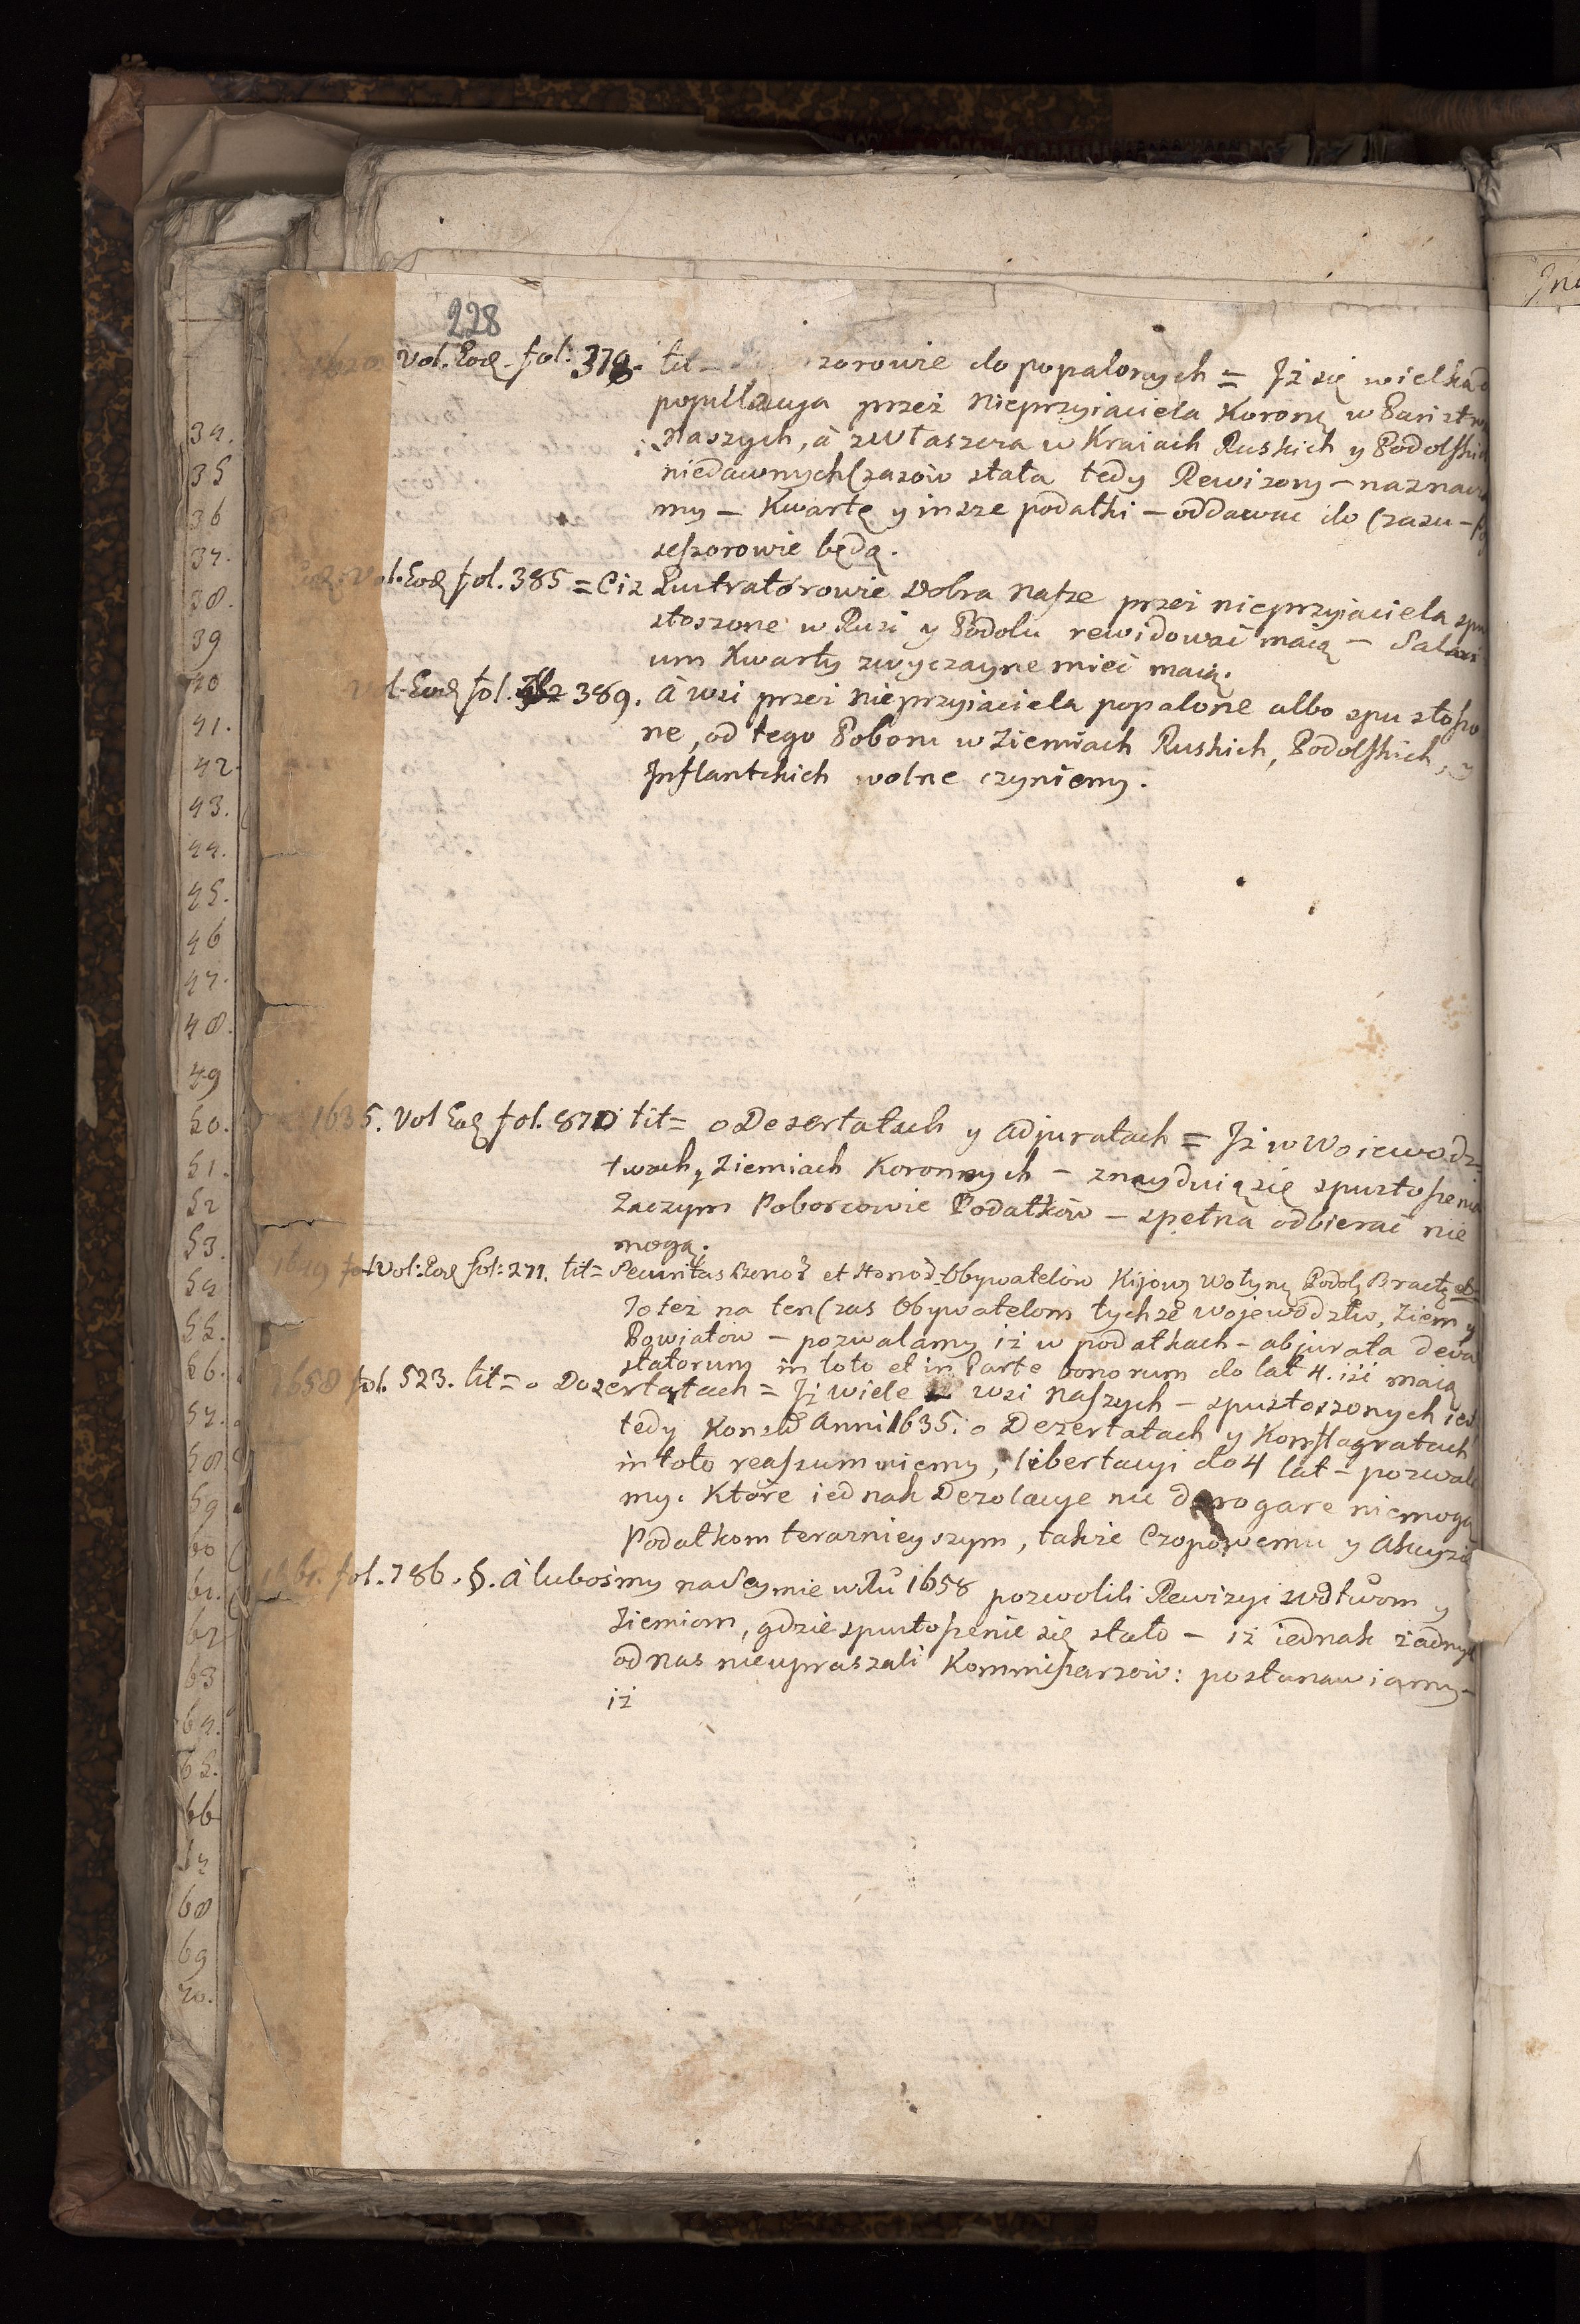 228
Vol. Eod. fol. 379. tit = zorowie do popalonych = Iż się wielka d
popullacyja przez Nieprzyiaciela Korony w Państw
Naszych, à zwłaszcza w Kraiach Ruskich y Podolskich
niedawnych Czasów stała tedy Rewizory – naznacza
my – Kwartę y insze podatki – oddawać do Czasu –
sessorowie będą.
Vol. Eod fol. 385 = Ciz Lustratorowie Dobra Nasze przez nieprzyiaciela spu
stoszone w Rusi y Podolu rewidować maią – Salari
um Kwarty zwyczayne mieć maią.
Vol. Eod fol. 389. à wsi przez nieprzyiaciela popalone albo spustoszo
ne, od tego Poboru w Ziemiach Ruskich, Podolskich, y
Inflantskich wolne czyniemy.
1635. Vol Eod fol. 870 tit = o Desertatach y Adjuratach = Iż w Woiewodz-
twach y Ziemiach Koronnych – znayduią się spustoszenia
Zaczym Poborcowie Podatków – spełna odbierać nie
mogą.
1649 Vol: Eod fol: 271. tit = Securitas Bonor et Honor Obywatelów Kijow Wołyn Podol Bracł
Jo tez na ten Czas Obywatelom tychże Wojewodztw, Ziem y
Powiatów – pozwalamy iż w podatkach – abjurata deva
statorum in toto et in Parte bonorum do lat 4. iść maią
658 fol. 523. tit = o Dezertatach = Iż wiele wsi Naszych – spustoszonych iest
tedy Konst Anni 1635. o Dezertatach y Konflagratach
in toto reassumuiemy, libertacyi do 4 lat – pozwala
my. Które iednak Dezolacye nic derogare niemogą
Podatkom teraznieyszym, także Czopowemu y Akcyzie
1661. fol. 786. §. à lubośmy na Seymie w Ru 1658 pozwolili Rewizyi wdtwom y
Ziemiom, gdzie spustoszenie się stało – iż iednak żadnych
od nas nieupraszali Kommissarzow: postanawiamy –
iż
34.
35
36
37.
38.
39
40
41.
42.
43.
44.
45.
46
47.
48.
49
50.
51.
52
53.
54
55.
56.
57.
58
59
60
61.
62
63
64.
65.
66
67
68
69
70.